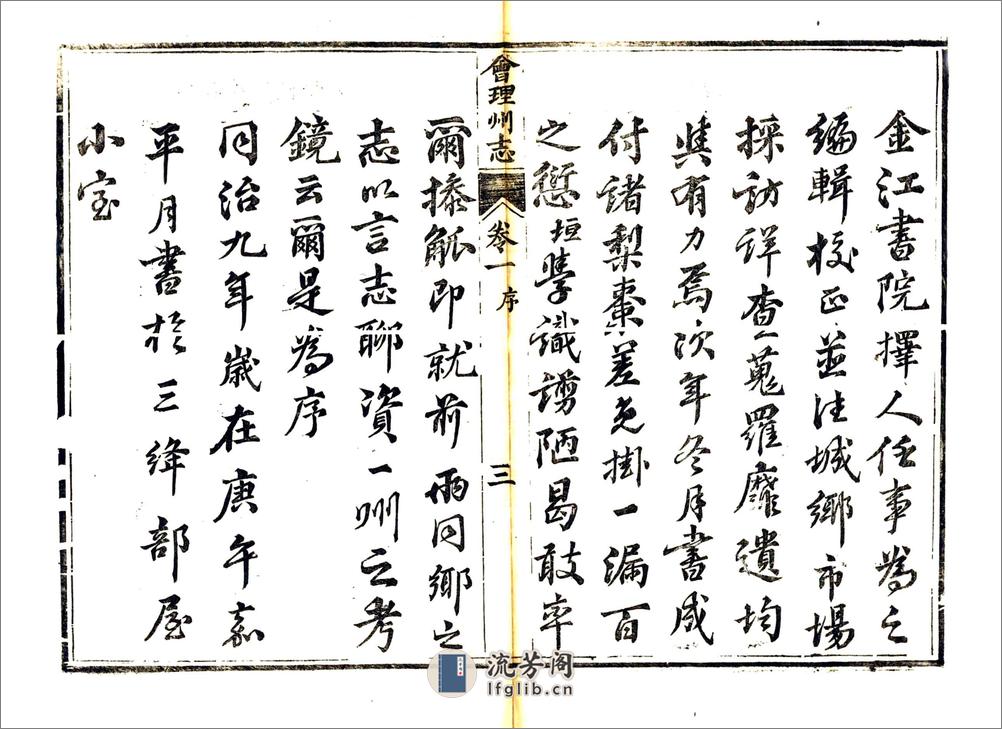 金江書院擇人任事為之
編輯校正並往城鄉市場
採訪詳查蒐羅靡遺均
與有力焉次年冬月書成
付諸梨棗差免掛一漏百
之愆垣學識謭陋曷敢率
會理州志
卷一
序
三
爾操觚即就前兩同鄉之
志以言志聊資一州之考
鏡云爾是為序
同治九年歲在庚午嘉
平月書於三絳部屋
小室
流芳阁
lfglib.cn